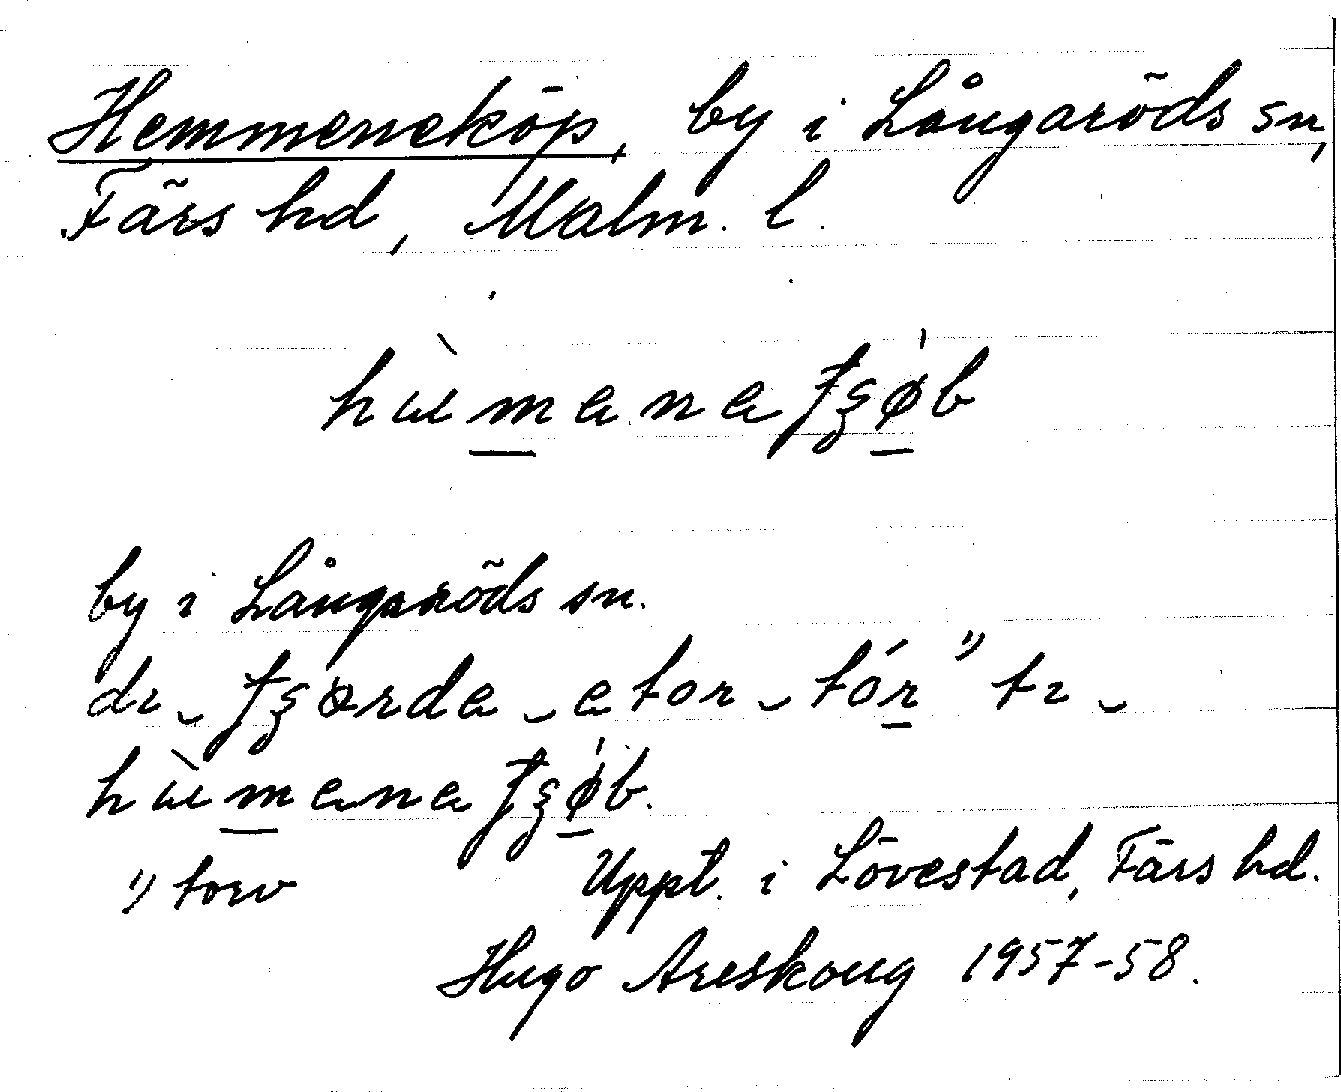 Hemmeneköp, by i Långaröds sn,
Färs hd, Malm. l.
hὼmanaʄʂøb
by i Långaröds sn.
dɩ‿ʄʂørda‿a tor‿tór ¹⁾ tɩ‿
hὼmanaʄʂøb.
¹⁾ torv Uppt. i Lövestad, Färs hd.
Hugo Areskoug 1957-58.